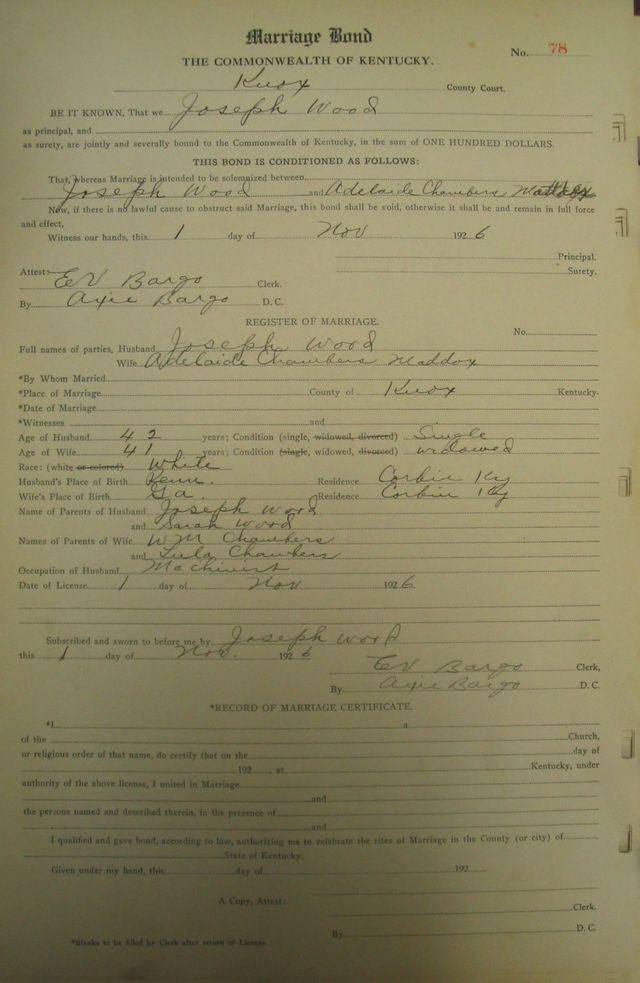 Marriage Bond
No. 78
THE COMMONWEALTH OF KENTUCKY.
Knox County Court.
BE IT KNOWN, That we Joseph Wood
as principal, and
as surety, are jointly and severally bound to the Commonwealth of Kentucky, in the sum of ONE HUNDRED DOLLARS.
THIS BOND IS CONDITIONED AS FOLLOWS:
That, whereas Marriage is intended to be solemnized between
Joseph Wood and Adelaide Chambers Maddox
Now, if there is no lawful cause to obstruct said Marriage, this bond shall be void, otherwise it shall be and remain in full force
and effect,
Witness our hands, this 1 day of Nov 1926
Principal.
Surety.
Attest: EV Bargo Clerk.
By Axie Bargo D. C.
REGISTER OF MARRIAGE.
No.
Full names of parties, Husband Joseph Wood
Wife Adelaide Chambers Maddox
*By Whom Married
*Place of Marriage County of Knox Kentucky
*Date of Marriage
*Witnesses and
Age of Husband 42 years; Condition (single, widowed, divorced) Single
Age of Wife 41 years; Condition (single, widowed, divorced) widowed
Race: (white or colored) White
Husband's Place of Birth Residence Corbin Ky
Wife's Place of Birth Ga. Residence Corbin Ky
Name of Parents of Husband Joseph Wood
and Sarah Wood
Names of Parents of Wife WM Chambers
and Lula Chambers
Occupation of Husband Machinist
Date of License 1 day of Nov 1926
Subscribed and sworn to before me by Joseph Wood
this 1 day of Nov. 1926
EV Bargo Clerk,
By Axie Bargo D. C.
*RECORD OF MARRIAGE CERTIFICATE.
*I a
of the Church,
or religious order of that name, do certify that on the day of
192 , at Kentucky, under
authority of the above license, I united in Marriage
and
the persons named and described therein, in the presence of
and
I qualified and gave bond, according to law, authorizing me to celebrate the rites of Marriage in the County (or city) of
State of Kentucky.
Given under my hand, this day of 192
A Copy, Attest:
Clerk.
By D. C.
*Blanks to be filled by Clerk after return of License.